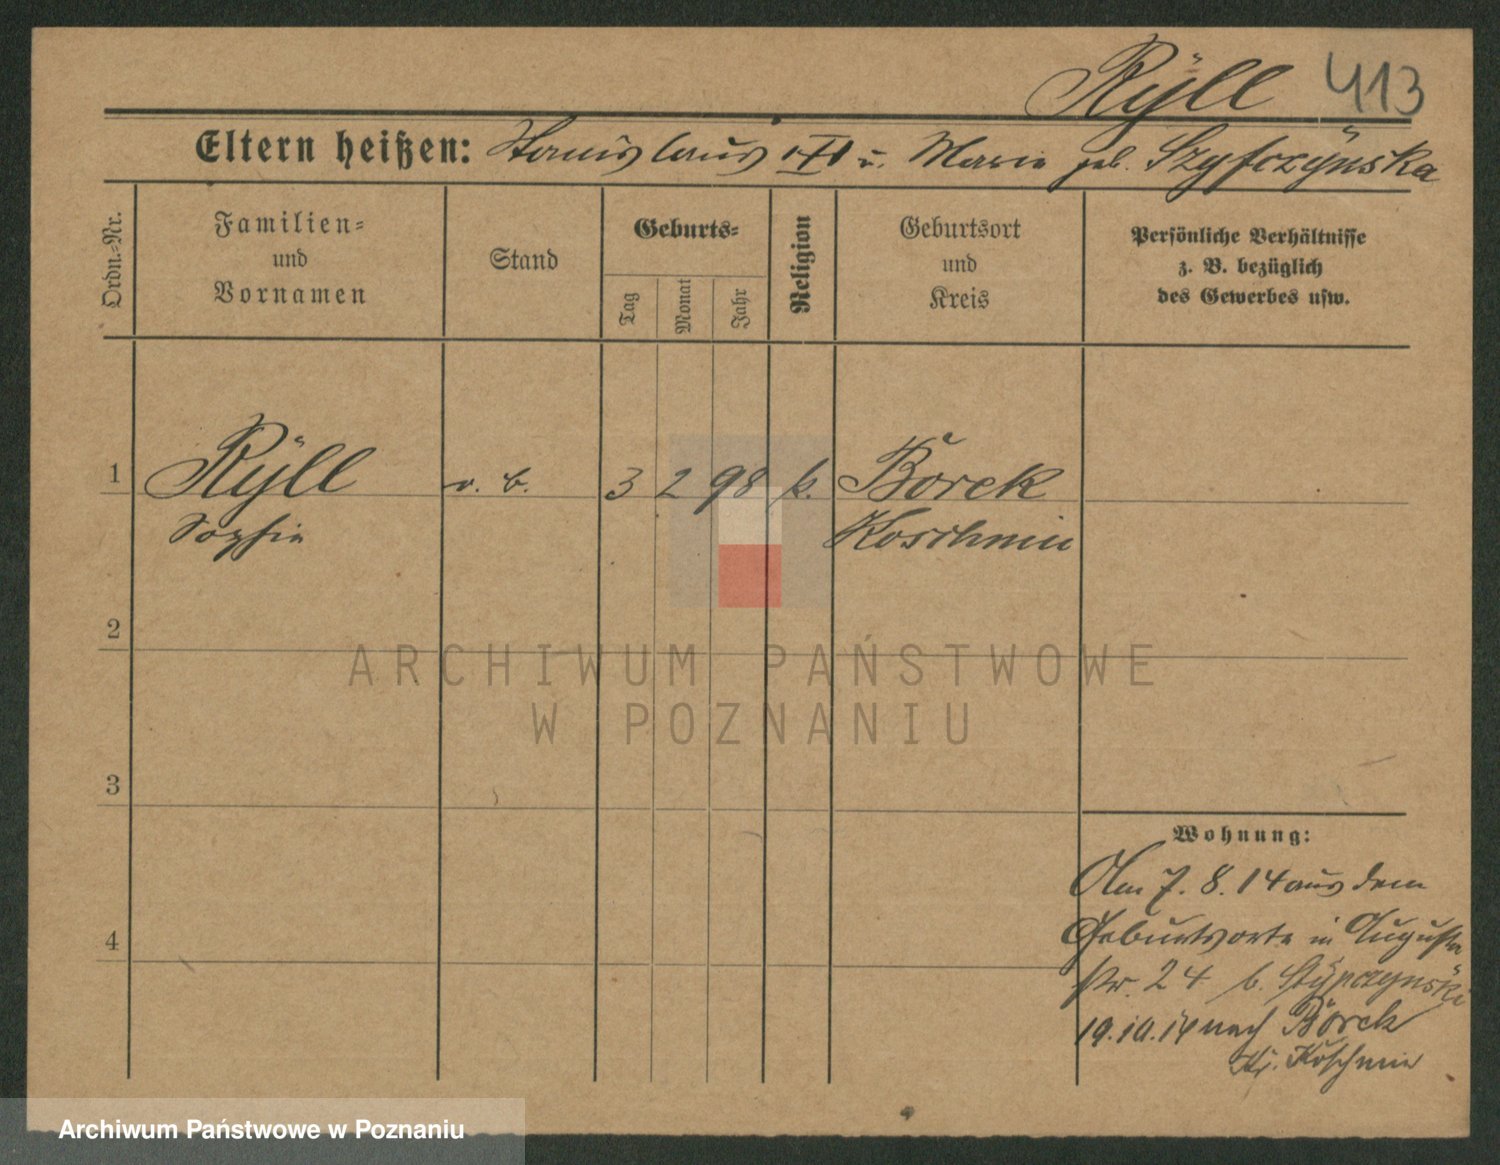 Rÿll 413
Eltern heißen: Stanislaus u. Marie geb.
Ordn.-Nr.
Familien- und Vornamen
Stand
Geburts-
Tag
Monat
Jahr
Religion
Geburtsort und Kreis
Persönliche Verhältnisse
z. B. bezüglich
des Gewerbes usw.
1 Rÿll o. b. 3 2 98 k. Borek
Sophie Koschmin
2
3
4
Wohnung:
Am 7. 8. 14 aus dem
Geburtsorte in Augusta
str. 24 b.
19.10.14 nach Borek
Kr. Koschmin
ARCHIWUM PAŃSTWOWE
W POZNANIU
Archiwum Państwowe w Poznaniu